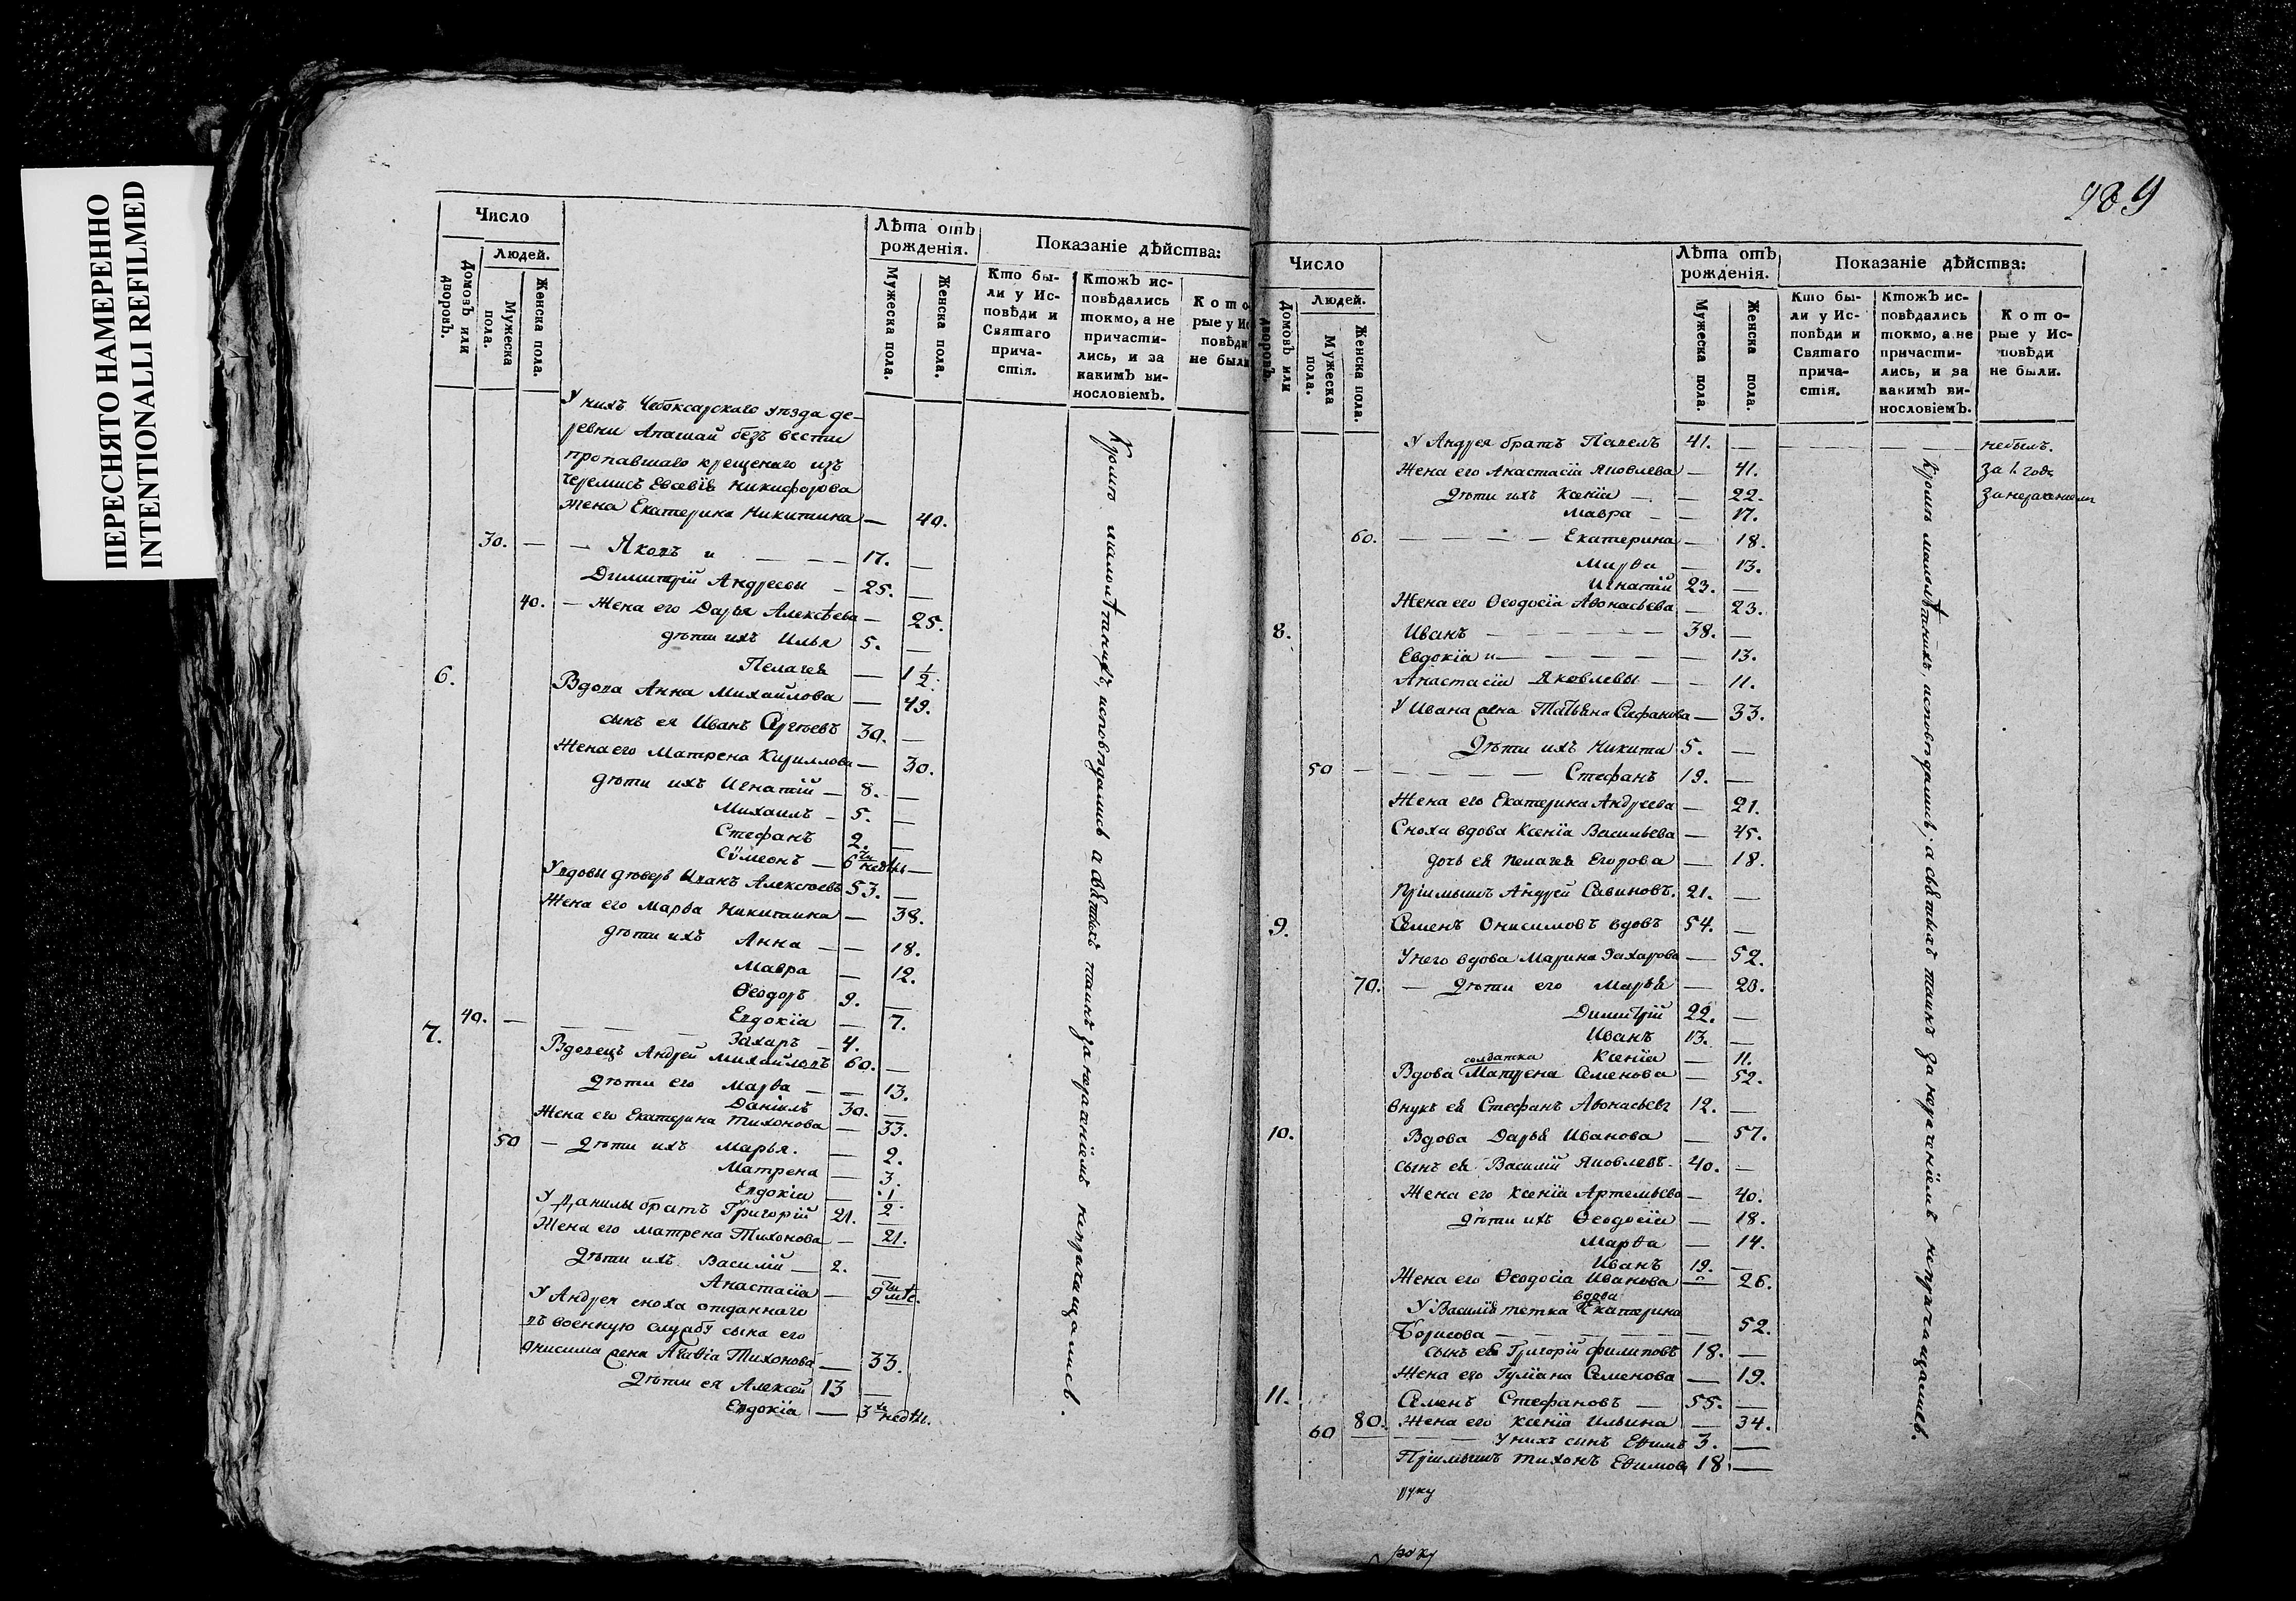 ПЕРЕСНЯТО НАМЕРЕННО
INTENTIONALLI REFILMED
Число
Людей.
Домовъ или дворовъ.
Мужеска пола.
Женска пола.
Лѣта отъ рожденія.
Мужеска пола.
Женска пола.
Показаніе дѣйства:
Кто бы-
ли у Ис-
повѣди и
Святаго
прича-
стія.
Ктожъ ис-
повѣдались
токмо, а не
причасти-
лись, и за
какимъ ви-
нословіемъ.
Кото
рые у Ис
повѣди
не были
У нихъ Чебоксарскаго уѣзда де-
ревни Апашай безъ вести
пропавшаго крещенаго изъ
черемисъ Евсевія Никифорова
жена Екатерина Никитина — 40.
30. — — Яковъ и — — — 17. —
Димитрій Андреевы — 25. —
40. — Жена его Дарья Алексѣева — 25.
дѣти ихъ Илья 5. —
Пелагея — 1 1/2.
6. Вдова Анна Михайлова — 49.
сынъ ея Иванъ Сергѣевъ 30. —
Жена его Матрена Кириллова — 30.
дѣти ихъ Игнатій — 8. —
Михаилъ — 5. —
Стефанъ 2. —
Сѵмеонъ — 6ти недѣль —
У вдовы дѣверь Иванъ Алексѣевъ 53. —
Жена его Марѳа Никитина — 38.
дѣти ихъ Анна — — 18.
Мавра — 12.
Ѳеодоръ 9. —
40. — — — — Евдокія — 7.
Захаръ — 4. —
7. Вдовецъ Андрей Михайловъ 60. —
Дѣти его Марѳа — — 13.
Даніилъ 30. —
Жена его Екатерина Тихонова — 33.
50 — Дѣти ихъ Марья. — 2.
Матрена — 3.
Евдокія — 1/2.
У Данилы братъ Григорій 21. —
Жена его Матрена Тихонова — 21.
Дѣти ихъ Василій — 2. —
Анастасія — 9ти мѣс.
У Андрея сноха отданнаго
въ военную службу сына его
Онисима жена Агаѳія Тихонова — 33.
Дѣти ея Алексей 13 —
Евдокія — 3х недѣль.
Кромѣ малолѣтнихъ, исповѣдались а святыхъ таинъ за нераченіемъ непричащались.
989
Число
Людей.
Домовъ или дворовъ.
Мужеска пола.
Женска пола.
Лѣта отъ рожденія.
Мужеска пола.
Женска пола.
Показаніе дѣйства:
Кто бы-
ли у Ис-
повѣди и
Святаго
прича-
стія.
Ктожъ ис-
повѣдались
токмо, а не
причасти-
лись, и за
какимъ ви-
нословіемъ.
Кото-
рые у Ис-
повѣди
не были.
У Андрея братъ Павелъ 41. — — — небылъ.
Жена его Анастасія Яковлева — 41. за 1 годъ
Дѣти ихъ Ксенія — — 22. за нераченіемъ
Мавра — — 17.
60. — — — — Екатерина — 18.
Марѳа — 13.
Игнатій 23. —
Жена его Ѳеодосія Аѳонасьева — 23.
8. Иванъ — — — — — 38. —
Евдокія и — — — — 13.
Анастасія Яковлевы — — 11.
У Ивана жена Татьяна Стефанова — 33.
Дѣти ихъ Никита 5. —
50 — — — — — Стефанъ 19. —
Жена его Екатерина Андреева — 21.
Сноха вдова Ксенія Васильева — 45.
дочь ея Пелагея Егорова — 18.
Пріимышъ Андрей Савиновъ. 21. —
9. Семенъ Онисимовъ вдовъ 54. —
У него вдова Марина Захарова — 52.
70. — Дѣти его Марья — 23.
Димитрій 22. —
Иванъ 13. —
Ксенія — 11.
солдатка
Вдова Матрена Семенова — 52.
Внукъ ея Стефанъ Аѳонасьевъ 12. —
10. Вдова Дарья Иванова — 57.
сынъ ея Василій Яковлевъ. 40. —
Жена его Ксенія Артемьева — 40.
Дѣти ихъ Ѳеодосія — 18.
Марѳа — 14.
Иванъ 19. —
Жена его Ѳеодосія Иванова — 26.
вдова
У Василія тетка Екатерина
Борисова — — — — — 52.
сынъ ея Григорій Филиповъ 18. —
Жена его Гуліана Семенова — 19.
11. Семенъ Стефановъ — 55. —
80. Жена его Ксенія Ильина — 34.
60 — — — У нихъ сынъ Еѳимъ 3. —
Пріимышъ Тихонъ Еѳимовъ 18. —
руку
Кромѣ малолѣтнихъ, исповѣдались, а святыхъ таинъ за нераченіемъ непричащались.